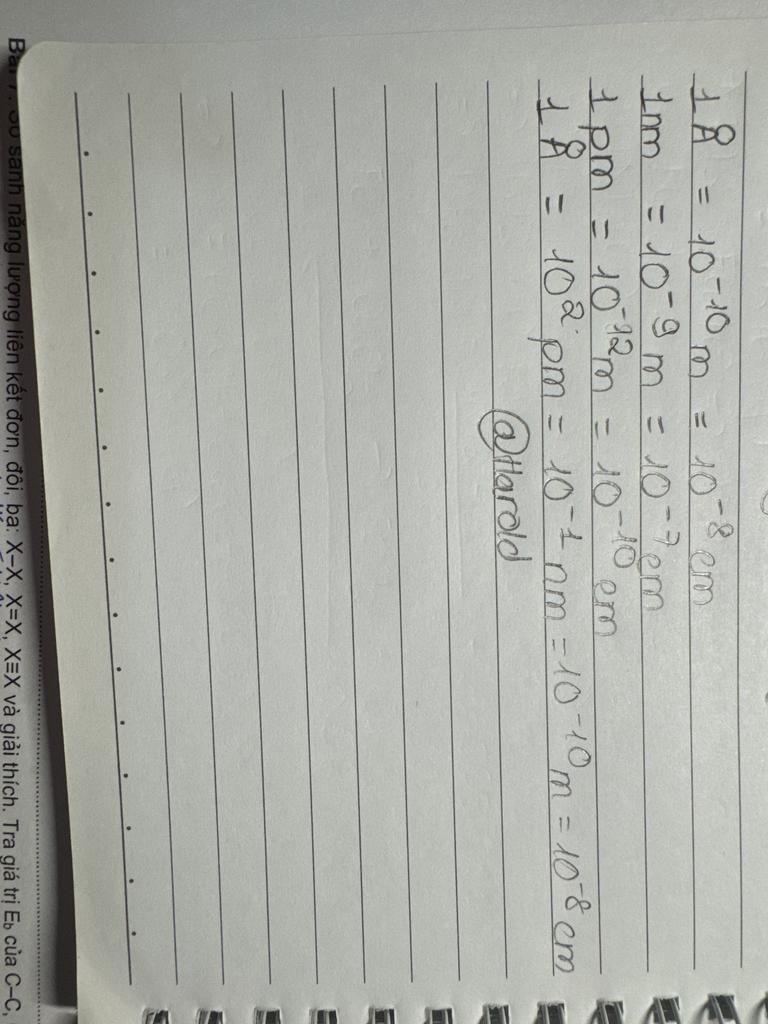 1 Å = 10⁻¹⁰ m = 10⁻⁸ cm
1nm = 10⁻⁹ m = 10⁻⁷ cm
1 pm = 10⁻¹² m = 10⁻¹⁰ cm
1 Å = 10² pm = 10⁻¹ nm = 10⁻¹⁰ m = 10⁻⁸ cm
@Harold
sánh năng lượng liên kết đơn, đôi, ba: X–X, X=X, X≡X và giải thích. Tra giá trị E_b của C–C,